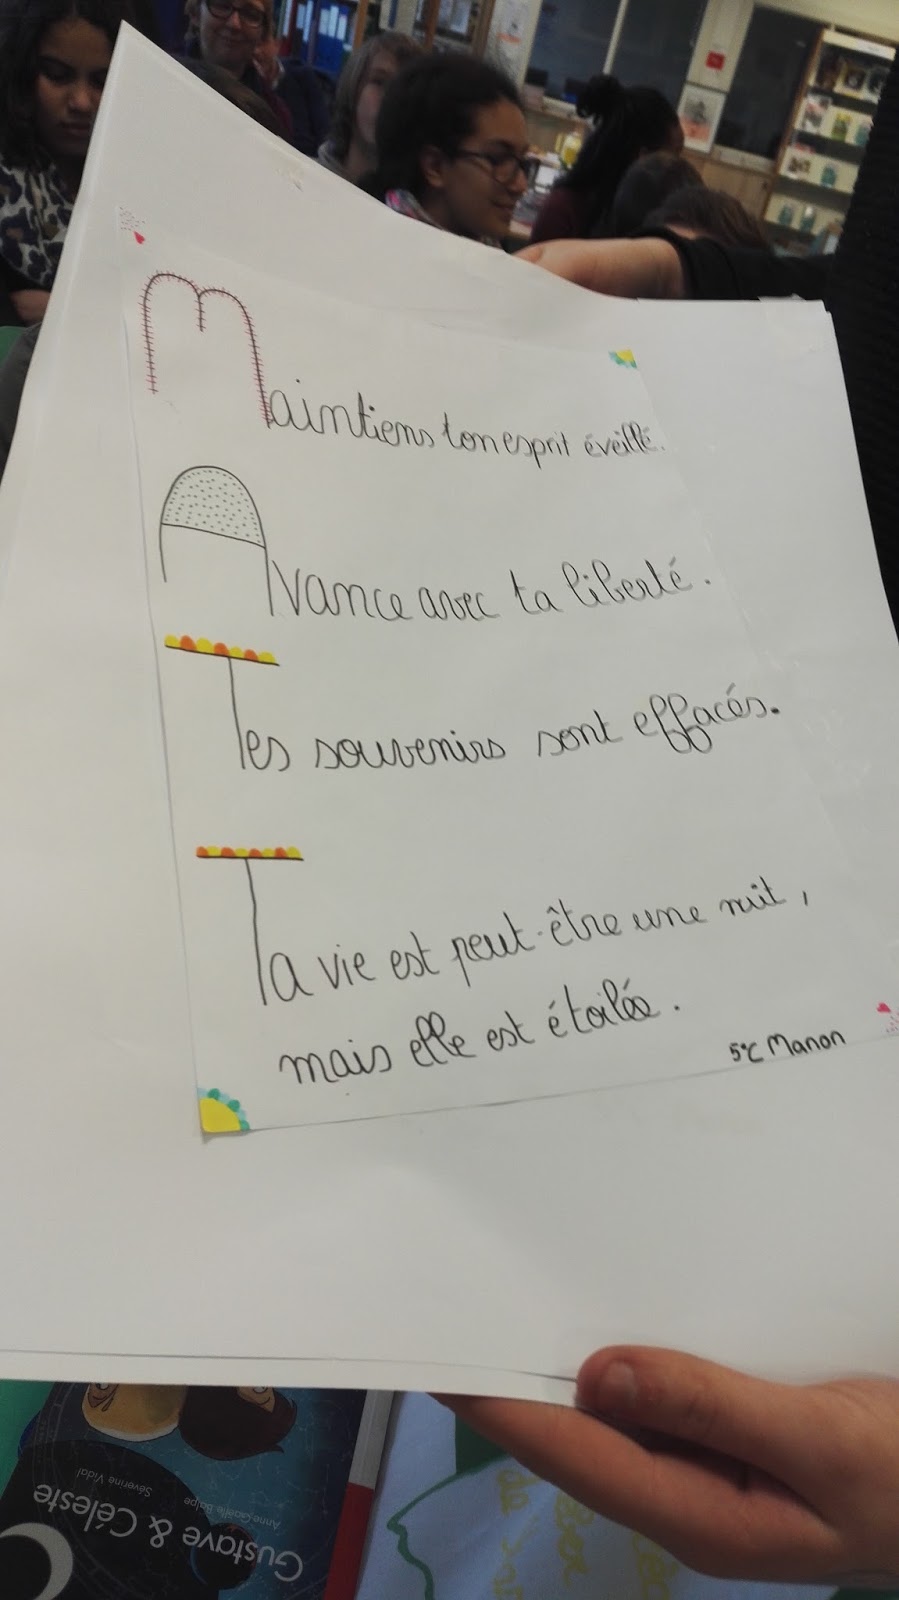 Maintiens ton esprit éveillé.
Avance avec ta liberté.
Tes souvenirs sont effacés.
Ta vie est peut-être une nuit,
mais elle est étoilée.
5°C Manon
Gustave & Céleste
Anne-Gaëlle Balpe
Séverine Vidal